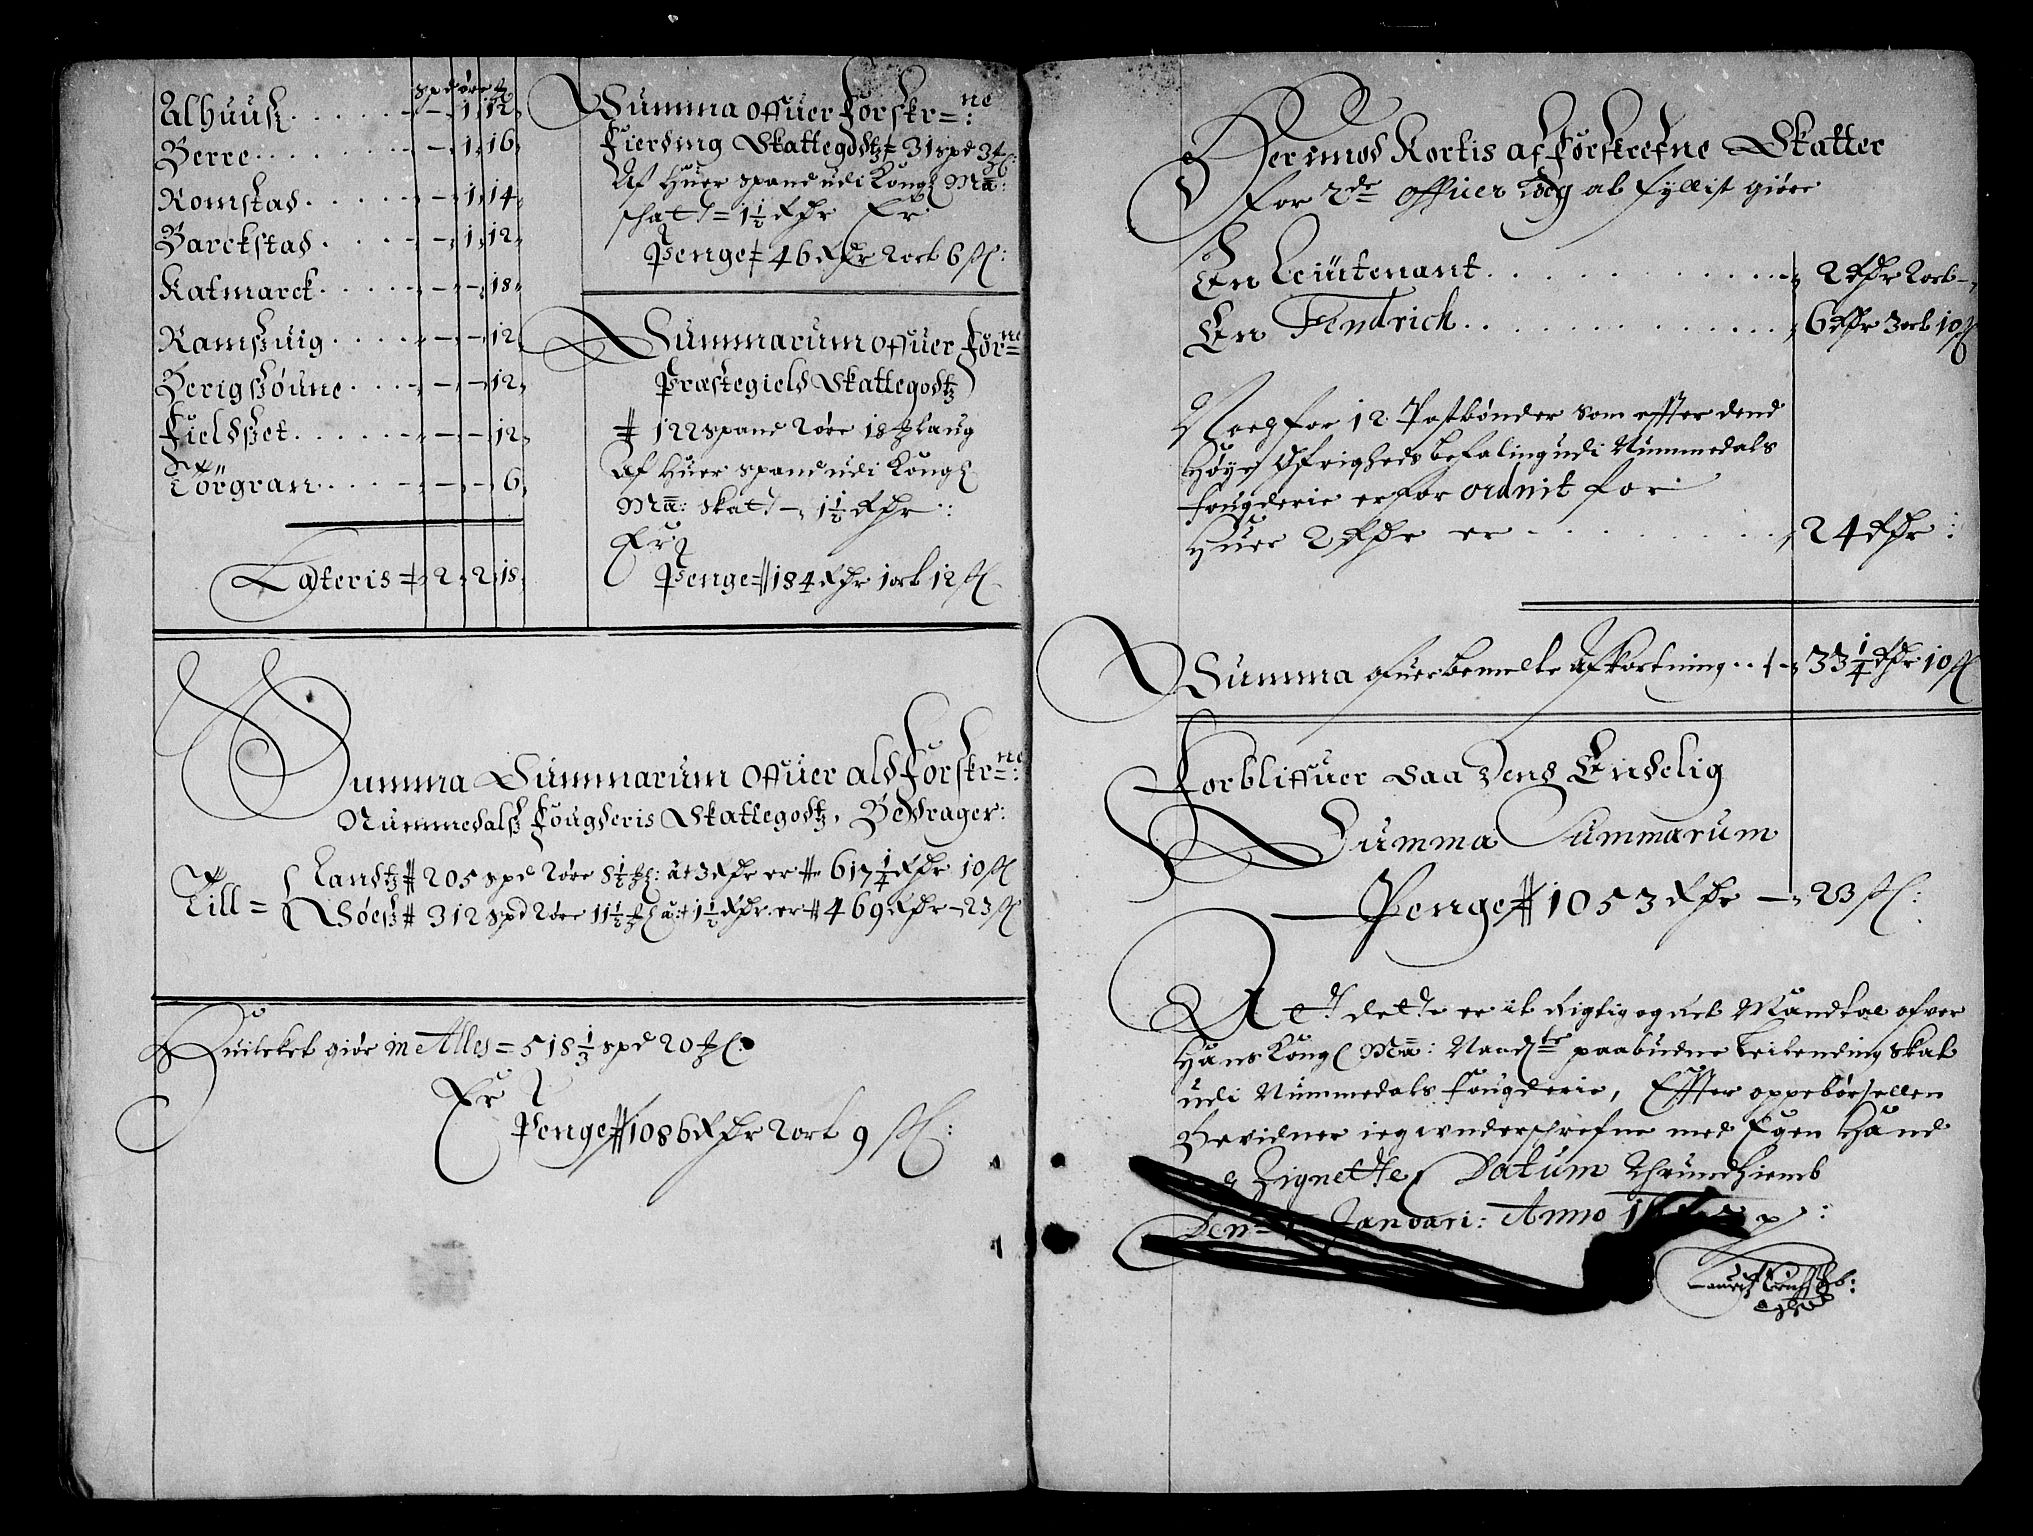 spd øre
Alhuus . . . . . – 1 12
Berre . . . . . – 1 16
Romstad . . . . . – 1 14
Barckstad . . . . – 1 12
Katmarck . . . . – – 18
Ramßuiig . . . . – – 12
Berigsßøune . . . – – 12
Fieldßet . . . . . – – 12
Törgran . . . . – – 6
Lateris 2 2 18
Summa offuer Forskr=ne:
Fierding Skattegodtz 31 spd 3
Af Huer spand udi Kongl Ma:
schatt = 1½ Rdr Er
Penge 46 Rdr 2 ort 6 ß:
Summarum offuer For=ne
Præstegield Skattegodtz
122 spand 2 øre 18 laug
Af Huer spand udi Kongl
Ma: skatt – 1½ Rdr:
Er
Penge 184 Rdr 1 ort 12 ß
Summa Summarum offuer ald Forskr=ne:
Nummedalß Fougderis Skattegodtz, Bedrager:
Till = Landtz 205 spd 2 øre 8½ : at 3 Rdr er 617¼ Rdr 10 ß
Søeß 312 spd 2 øre 11½ at 1½ Rdr er 469 Rdr – 23 ß
Huilcket giör in Alles = 518⅓ spd 20
Er
Penge 1086 Rdr 2 ort 9 ß:
Herimod Kortis af Forskrefne Skatter
For 2de officer Læg at fyllist giøre
En Leiütenant . . . . . 2 Rdr 2 ort –
En Fendrich . . . . . 6 Rdr 3 ort 10 ß
Noch for 12 Postbønder som effter dend
Høye Øfrigheds befaling udi Nummedals
fougderie er for ordnit for
Huer 2 Rdr er . . . . . 24 Rdr:
Summa ofuerbemelte Afkortning . . 33¼ Rdr 10 ß
Forbliffuer saa Dend Endelig
Summa Summarum
Penge 1053 Rdr – 23 ß:
At dette er it Rigtig og Ret Mandtal ofver
Hans Kongl Ma: Naadte paabudne Leilending skat
udi Nummedals fougderie, Effter oppebørsellen
Bevidner ieg underschrefne med Egen Hand
Zignette, Datum Thrundhiemb
Den Januari: Anno